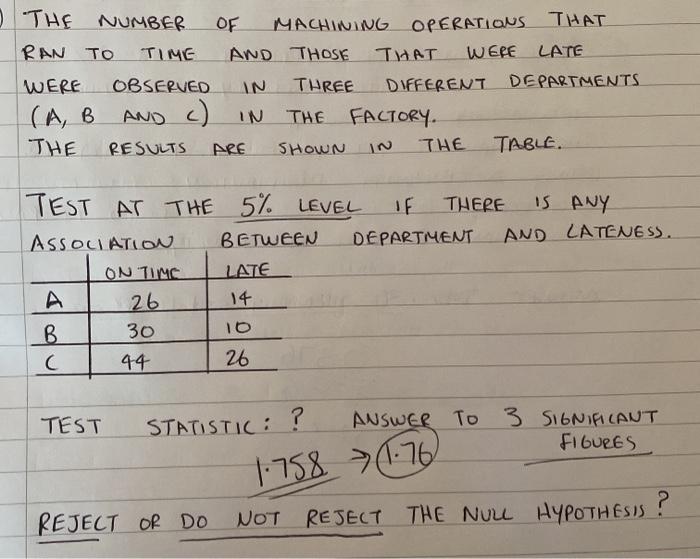 THE NUMBER OF MACHINING OPERATIONS THAT
RAN TO TIME AND THOSE THAT WERE LATE
WERE OBSERVED IN THREE DIFFERENT DEPARTMENTS
(A, B AND C) IN THE FACTORY.
THE RESULTS ARE SHOWN IN THE TABLE.
TEST AT THE 5% LEVEL IF THERE IS ANY
ASSOCIATION BETWEEN DEPARTMENT AND LATENESS.
ON TIME LATE
A 26 14
B 30 10
C 44 26
TEST STATISTIC: ? ANSWER TO 3 SIGNIFICANT
FIGURES
1.758 → 1.76
REJECT OR DO NOT REJECT THE NULL HYPOTHESIS?